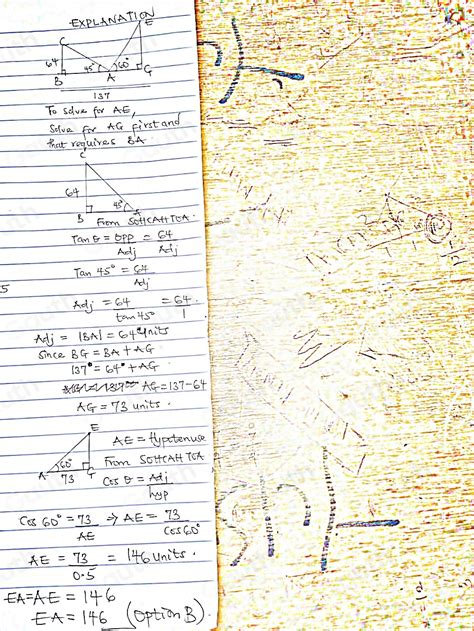 EXPLANATION
C
E
64
45°
60°
B
A
G
137
To solve for AE,
Solve for AG first and
that requires BA
C
64
B
45°
A
From SOHCAHTOA.
Tan θ = Opp/Adj = 64/Adj
Tan 45° = 64/Adj
Adj = 64/tan 45° = 64/1.
Adj = |BA| = 64 units
Since BG = BA + AG
137° = 64° + AG
AG = 137-64
AG = 73 units.
E
AE = Hypotenuse
From SOHCAHTOA
A
60°
73
G
Cos θ = Adj/hyp
Cos 60° = 73/AE → AE = 73/Cos60°
AE = 73/0.5 = 146 units.
EA=AE = 146
EA = 146 (Option B).